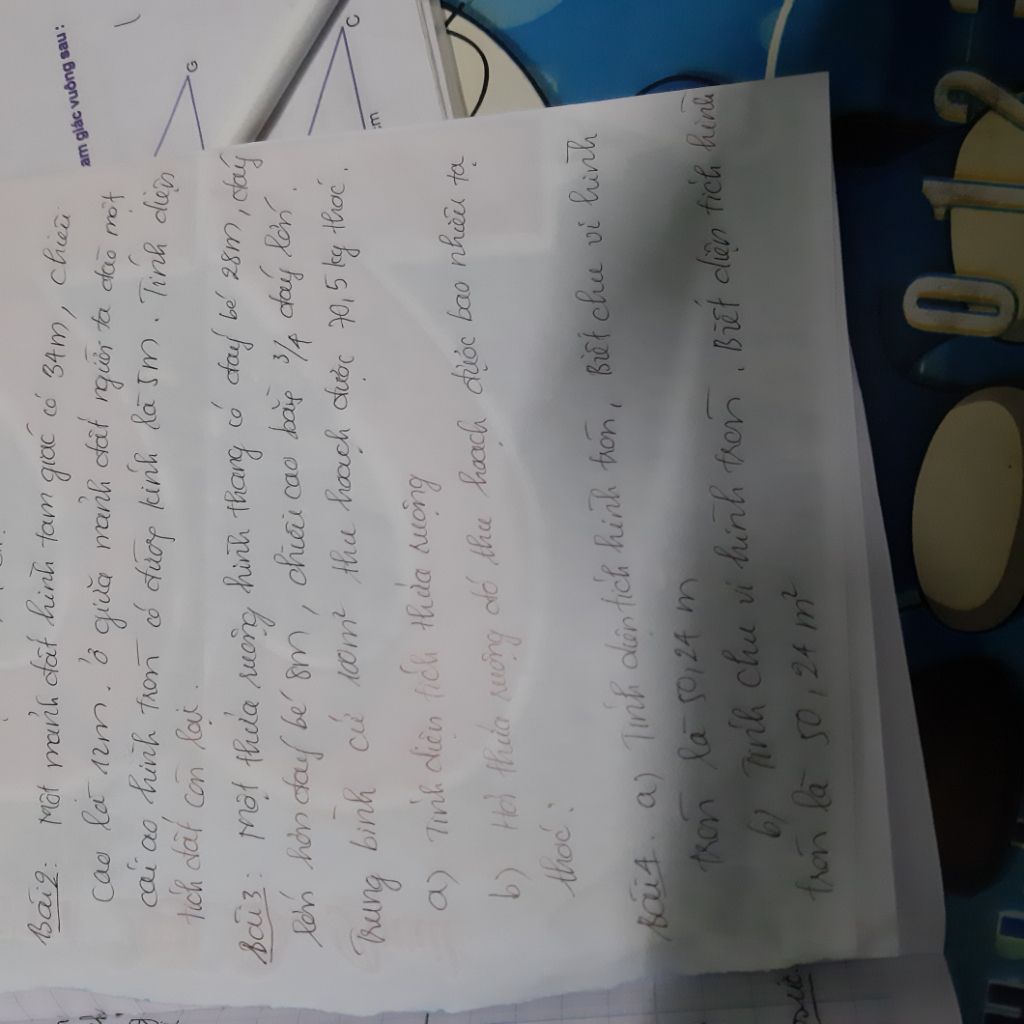 am giác vuông sau:
G
C
cm
Bài 2: Một mảnh đất hình tam giác có 34m, chiều
cao là 12m. Ở giữa mảnh đất người ta đào một
cái ao hình tròn có đường kính là 5m. Tính diện
tích đất còn lại.
Bài 3: Một thửa ruộng hình thang có đáy bé 28m, đáy
lớn hơn đáy bé 8m, chiều cao bằng 3/4 đáy lớn.
Trung bình cứ 100m² thu hoạch được 70,5kg thóc.
a) Tính diện tích thửa ruộng
b) Hỏi thửa ruộng đó thu hoạch được bao nhiêu tạ
thóc?
Bài 4. a) Tính diện tích hình tròn, Biết chu vi hình
tròn là 50,24 m
b) Tính chu vi hình tròn. Biết diện tích hình
tròn là 50,24 m²